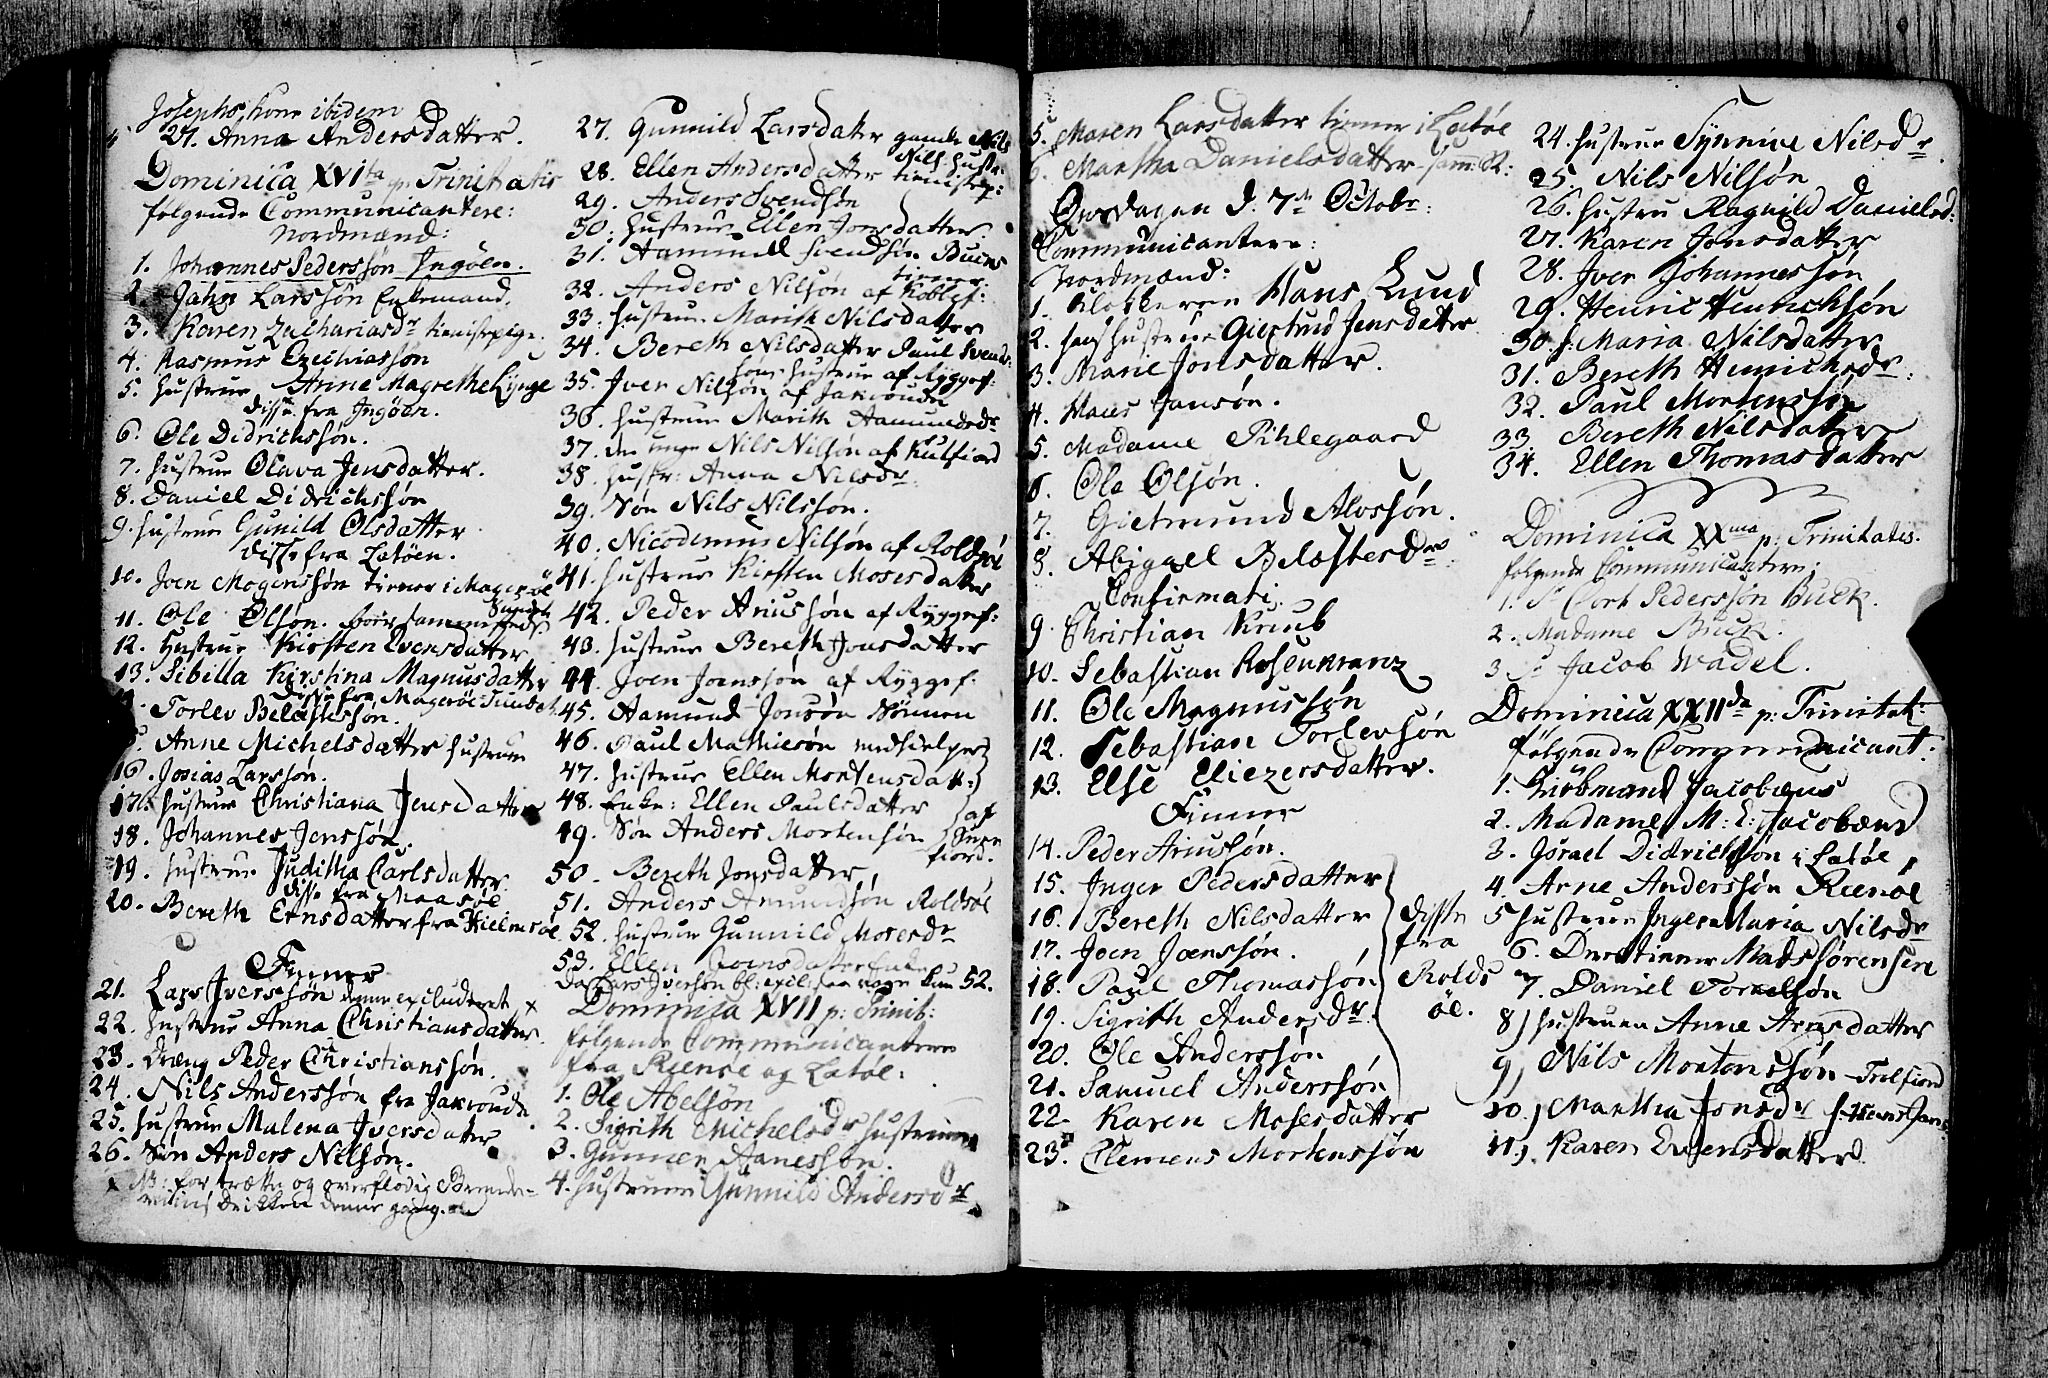 Josephs, kone ibidem
27. Anna Andersdatter.
Dominica XVIta p. Trinitatis
følgende Communicantere:
Nordmænd:
1. Johannes Pederssøn Ingöen.
2. Jahn Larssøn Enkemand.
3. Karen Zachariasdr tienistepige.
4. Rasmus Ezechiassøn
5. Hustrue Anne Magrethe Lÿnge
disse fra Ingöen.
6. Ole Didrichssøn.
7. hustrue Olava Jensdatter.
8. Daniel Didrichssøn
9. hustrue Gunild Olsdatter
disse fra Latöen.
10. Joen Mogenssøn tiener i Magerøe
Sundet
11. Ole Olsøn.
12. Hustrue Kirsten Evensdatter
13. Sibilla Kirstina Magnusdatter
disse fra Magerøe Sundet
Torlev Belastessøn.
Anne Michelsdatter hustrue
16. Josias Larssøn.
17. hustrue Christiana Jensdatter
18. Johannes Jenssøn.
19. hustrue Juditha Carlsdatter
disse fra Maasøe
20. Bereth Ernsdatter fra Hielmsøe
Finner
21. Lars Iverssøn denne excluderet x
22. hustrue Anna Christiansdatter.
23. dræng Peder Christianssøn.
24. Nils Anderssøn fra Jakobude
25. hustrue Malena Iversdatter
26. Søn Anders Nilsøn.
x NB: for trætte og overflødig Brende-
viins Drikken denne gang.
27. Gunnild Larsdatter gamle Nils
Nils: hustr:
28. Ellen Andersdatter tienistep:
29. Anders Svendsøn
30. hustrue Ellen Jonsdatter
31. Aamund Svendsøn Buens
tiener
32. Anders Nilsøn af Koblef:
33. hustrue Marith Nilsdatter
34. Bereth Nilsdatter Paul Svends:
sons hustrue af Ryggef:
35. Iver Nilsøn af Jakobude
36. hustrue Marith Aamundsdr
37. den unge Nils Nilsøn af Kulfiord
38. hustr: Anna Nilsdr
39. Søn Nils Nilssøn.
40. Nicodemus Nilsøn af Roldsøe
41. hustrue Kirsten Mosesdatter
42. Peder Ariussøn af Ryggef:
43. hustrue Bereth Jonsdatter
44. Joen Joenssøn af Ryggef:
45. Aamund Jonsøn Sønnen
46. Paul Mathiesøn medhielper
47. hustrue Ellen Mortensdatt:
48. Enke: Ellen Paulsdatter
49. Søn Anders Mortensøn
af
fiord.
50. Bereth Jonsdatter,
51. Anders Amundsøn Roldsøe
52. hustrue Gunnild Mosesdr
53. Ellen Joensdatter Enke
Da Lars Iversøn bl: excl: saa vare kun 52.
Dominica XVII p: Trinit:
følgende Communicantere
fra Reenøe og Latøe:
1. Ole Abelsøn
2. Sigrith Michelsdr hustrue
3. Gunner Aanessøn.
4. hustruen Gunnild Andersdr
5. Maren Larsdatter tiener i Latøe
6. Martha Danielsdatter sam: St:
Onsdagen d. 7de Octobr:
Communicantere:
Nordmænd:
1. Klokkeren Hans Lund
2. hans hustrue Giertrud Jensdatter
3. Marie Jonsdatter.
4. Hans Jansøn.
5. Madame Pihlegaard
6. Ole Olsøn.
7. Gietmund Alvssøn.
8. Abigael Belasterdr
Confirmati.
9. Christian Kruub
10. Sebastian Rosenkranz
11. Ole Magnussøn
12. Sebastian Torlevsøn
13. Else Eliezersdatter.
Finner
14. Peder Ariussøn.
15. Inger Pedersdatter
16. Bereth Nilsdatter
17. Joen Joenssøn.
18. Paul Thomassøn
19. Sigrith Andersdr.
20. Ole Anderssøn
21. Samuel Anderssøn
disse
fra
Rolds
øe.
22. Karen Mosesdatter
23. Clemens Mortenssøn
24. hustrue Synnive Nilsdr
25. Nils Nilsøn
26. hustru Ragnild Danielsd:
27. Karen Jonsdatter
28. Iver Johannessøn
29. Henric Henrichsøn
30. h: Maria Nilsdatter
31. Bereth Henrichsdr.
32. Paul Mortenssøn
33. Bereth Nilsdatter
34. Ellen Thomasdatter
Dominica XXma p: Trinitatis.
følgende Communicantere:
1. Sr Cort Pederssøn Buck.
2. Madame Buck.
3. Sr Jacob Wadel.
Dominica XXIIda p: Trinitat:
følgende Communicant:
1. Kiöbmand Jacobæus
2. Madame M: E: Jacobæus
3. Israel Didrichsøn i Latøe
4. Arne Anderssøn Reenøe
5 hustrue Ingeb Maria Nilsdr
6. Mads Sørensen
7. Daniel Torkelsøn
8) hustruen Anne Arnsdatter
9) Nils Mortenssøn Trolfiord
10.) Martha Jonsdr
11). Karen Evensdatter.